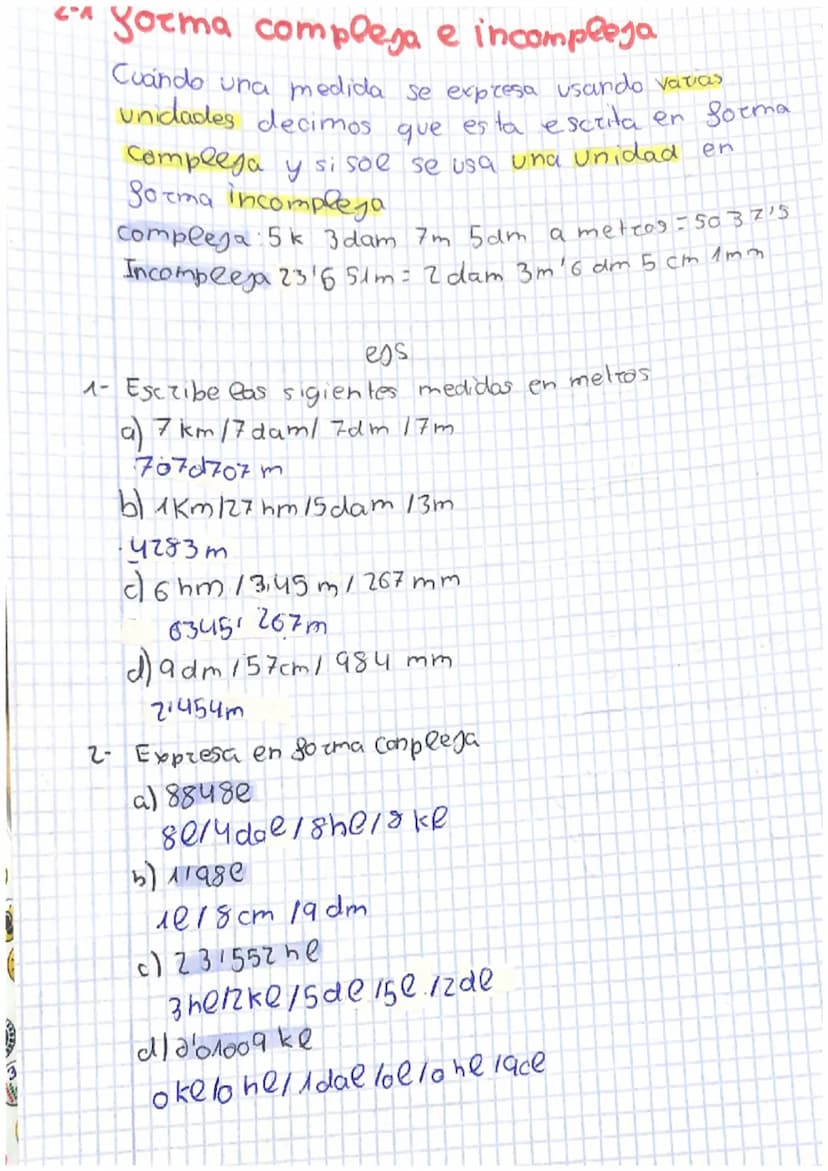 2-1 forma compleja e incompleja
Cuándo una medida se expresa usando varias
unidades decimos que esta escrita en forma
compleja y si sol se usa una unidad en
forma incompleja
compleja: 5k 3dam 7m 5dm a metros = 5037'5
Incompleja 23'651m = 2 dam 3m'6 dm 5 cm 1mm
ejs
1- Escribe las sigientes medidas en metros
a) 7 km/7dam/ 7dm /7m
707d707 m
b) 1Km/27 hm/5dam /3m
4283 m
c) 6 hm /3,45 m/ 267 mm
6345' 267m
d) 9dm /57cm/ 984 mm
2'454m
2- Expresa en forma conpleja
a) 8848l
8l/4dal/8hl/8 kl
b) 1'198l
1l/8cm /9dm
c) 23'552 hl
3hl/2kl/5dl/5l/2dl
d) 0'01009 kl
0kl/0 hl/1dal/0l/0 hl/9cl